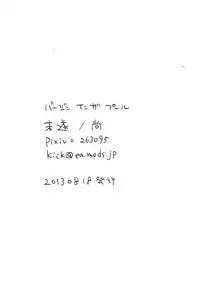 バージン インザ プール
未遠 / 尚
pixiv = 263095
kick@ea.mods.jp
20130818発行